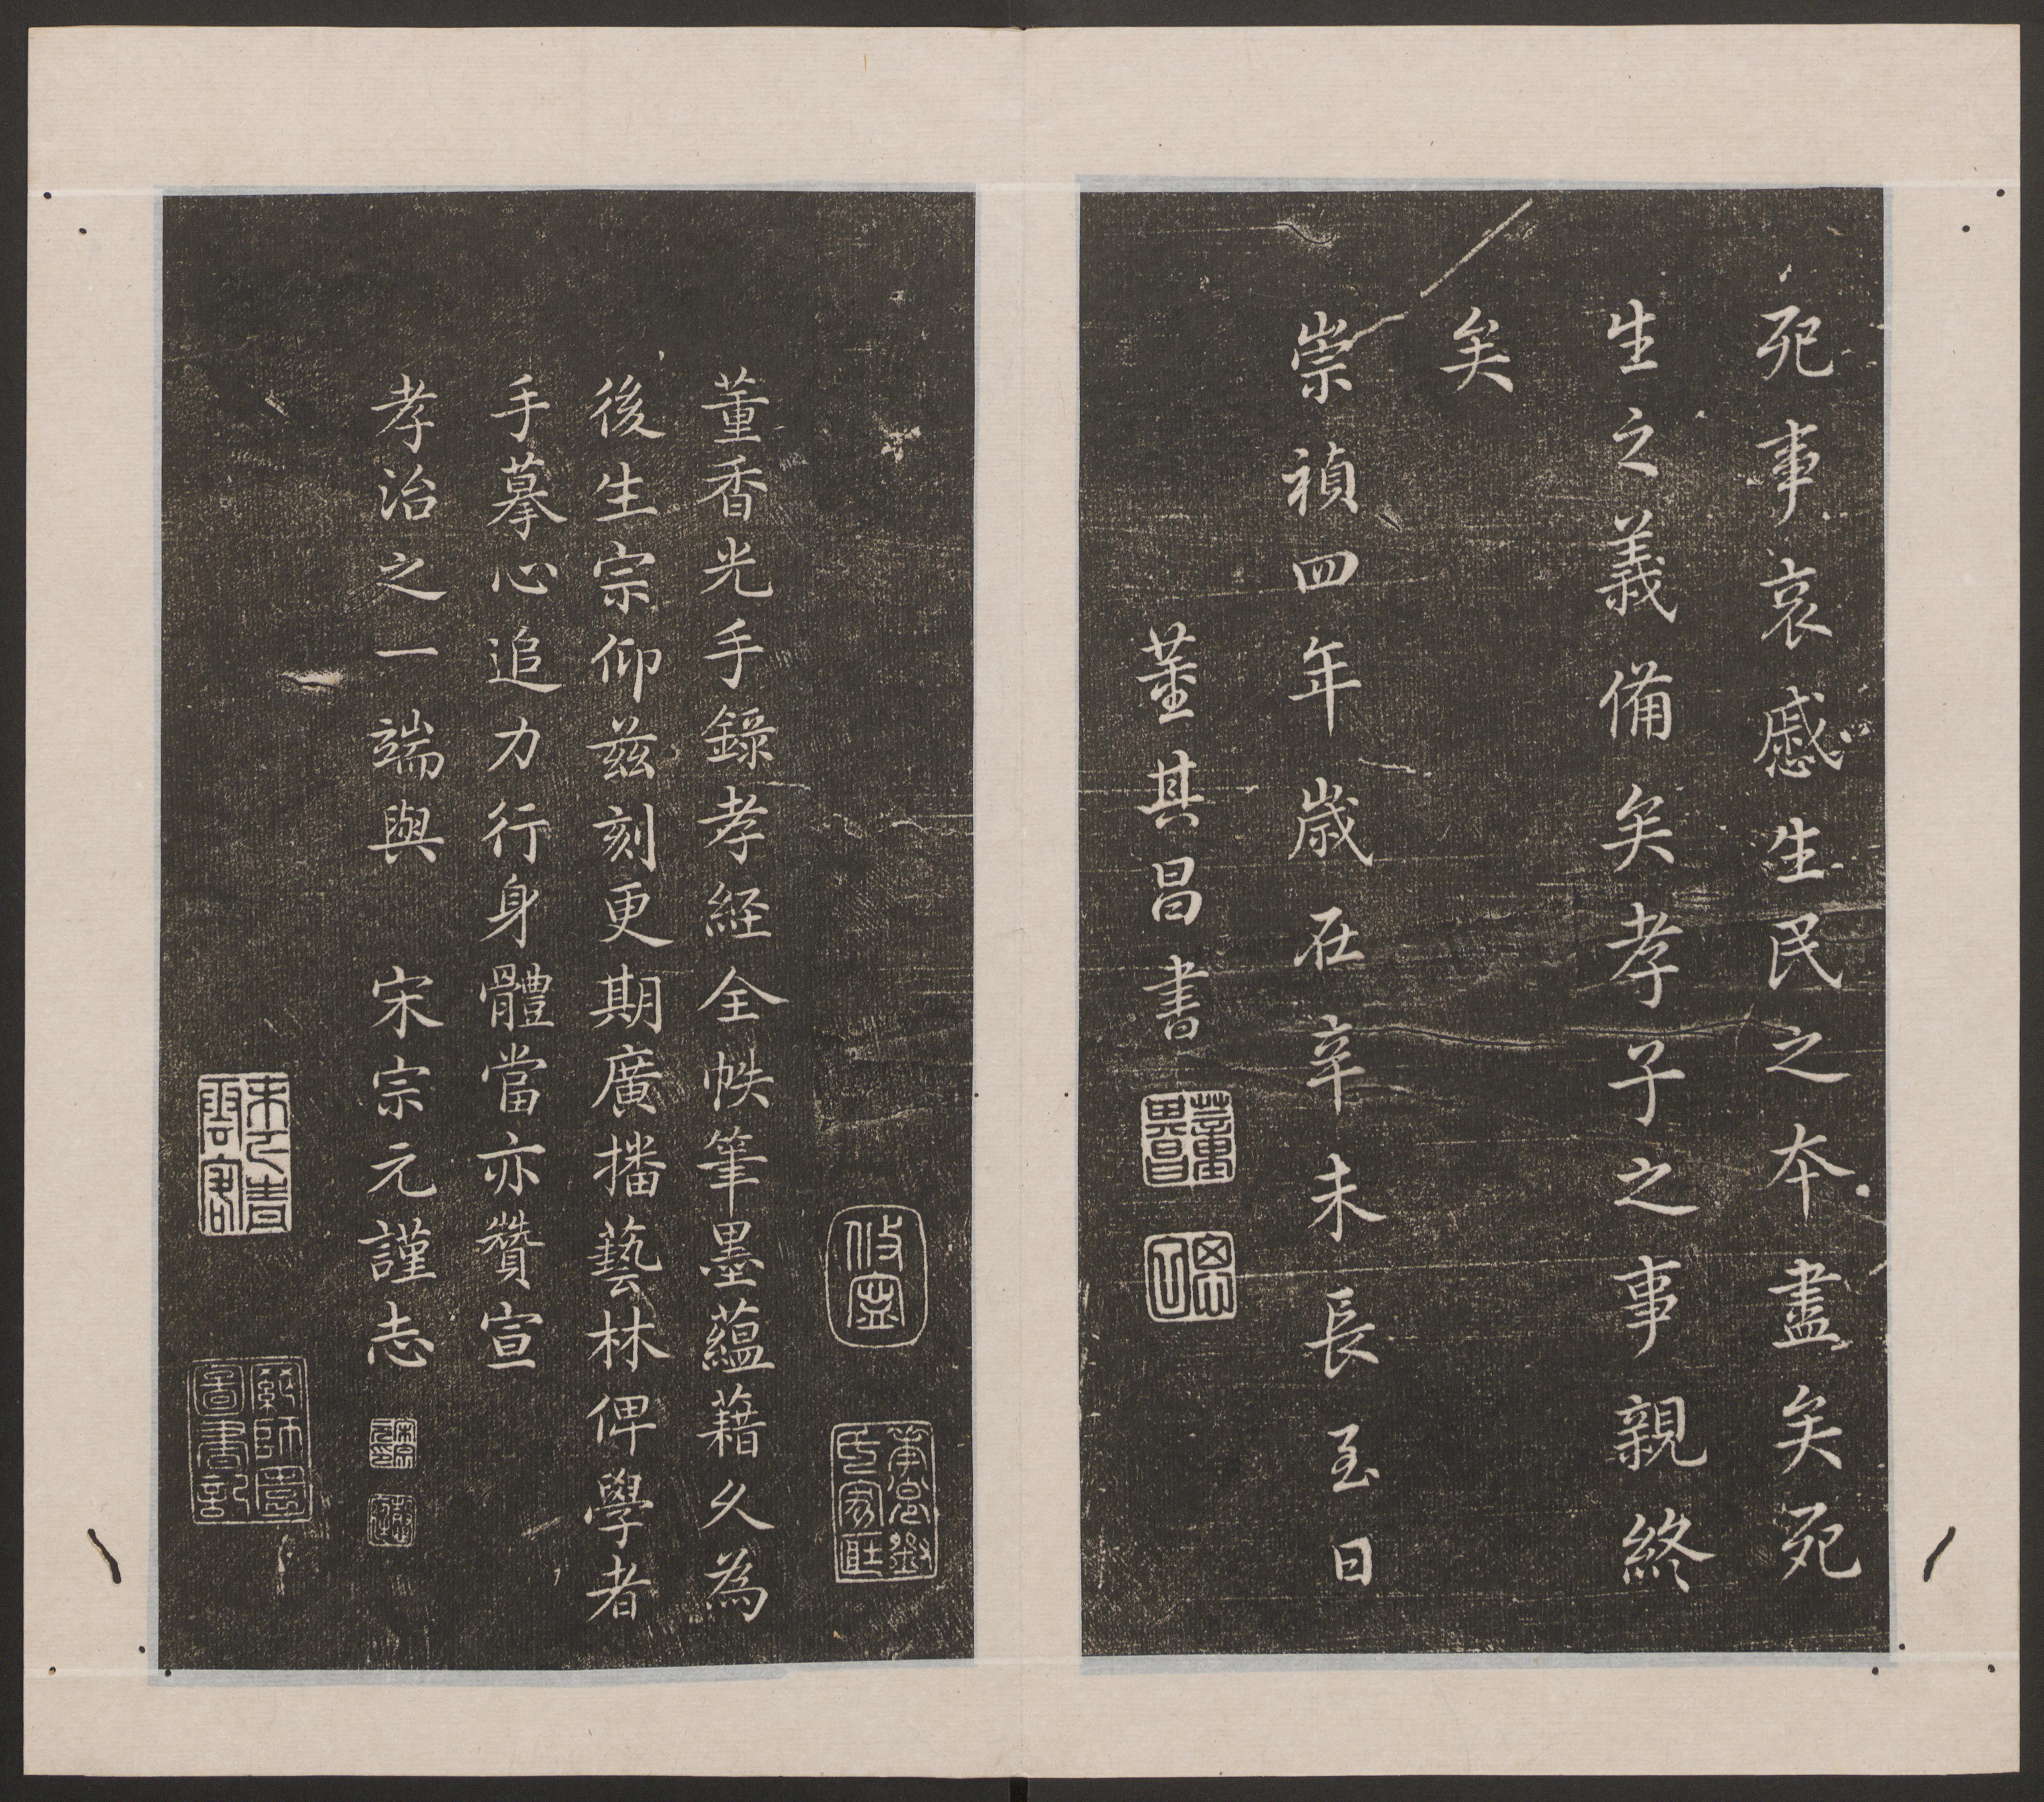 死事哀慼生民之本盡矣死
生之義備矣孝子之事親終
矣
崇禎四年歲在辛未長至日
董其昌書
董其昌
董香光手錄孝経全帙筆墨蘊藉久為
後生宗仰茲刻更期廣播藝林俾學者
手摹心追力行身體當亦贊宣
孝治之一端與 宋宗元謹志
網師園圖書記